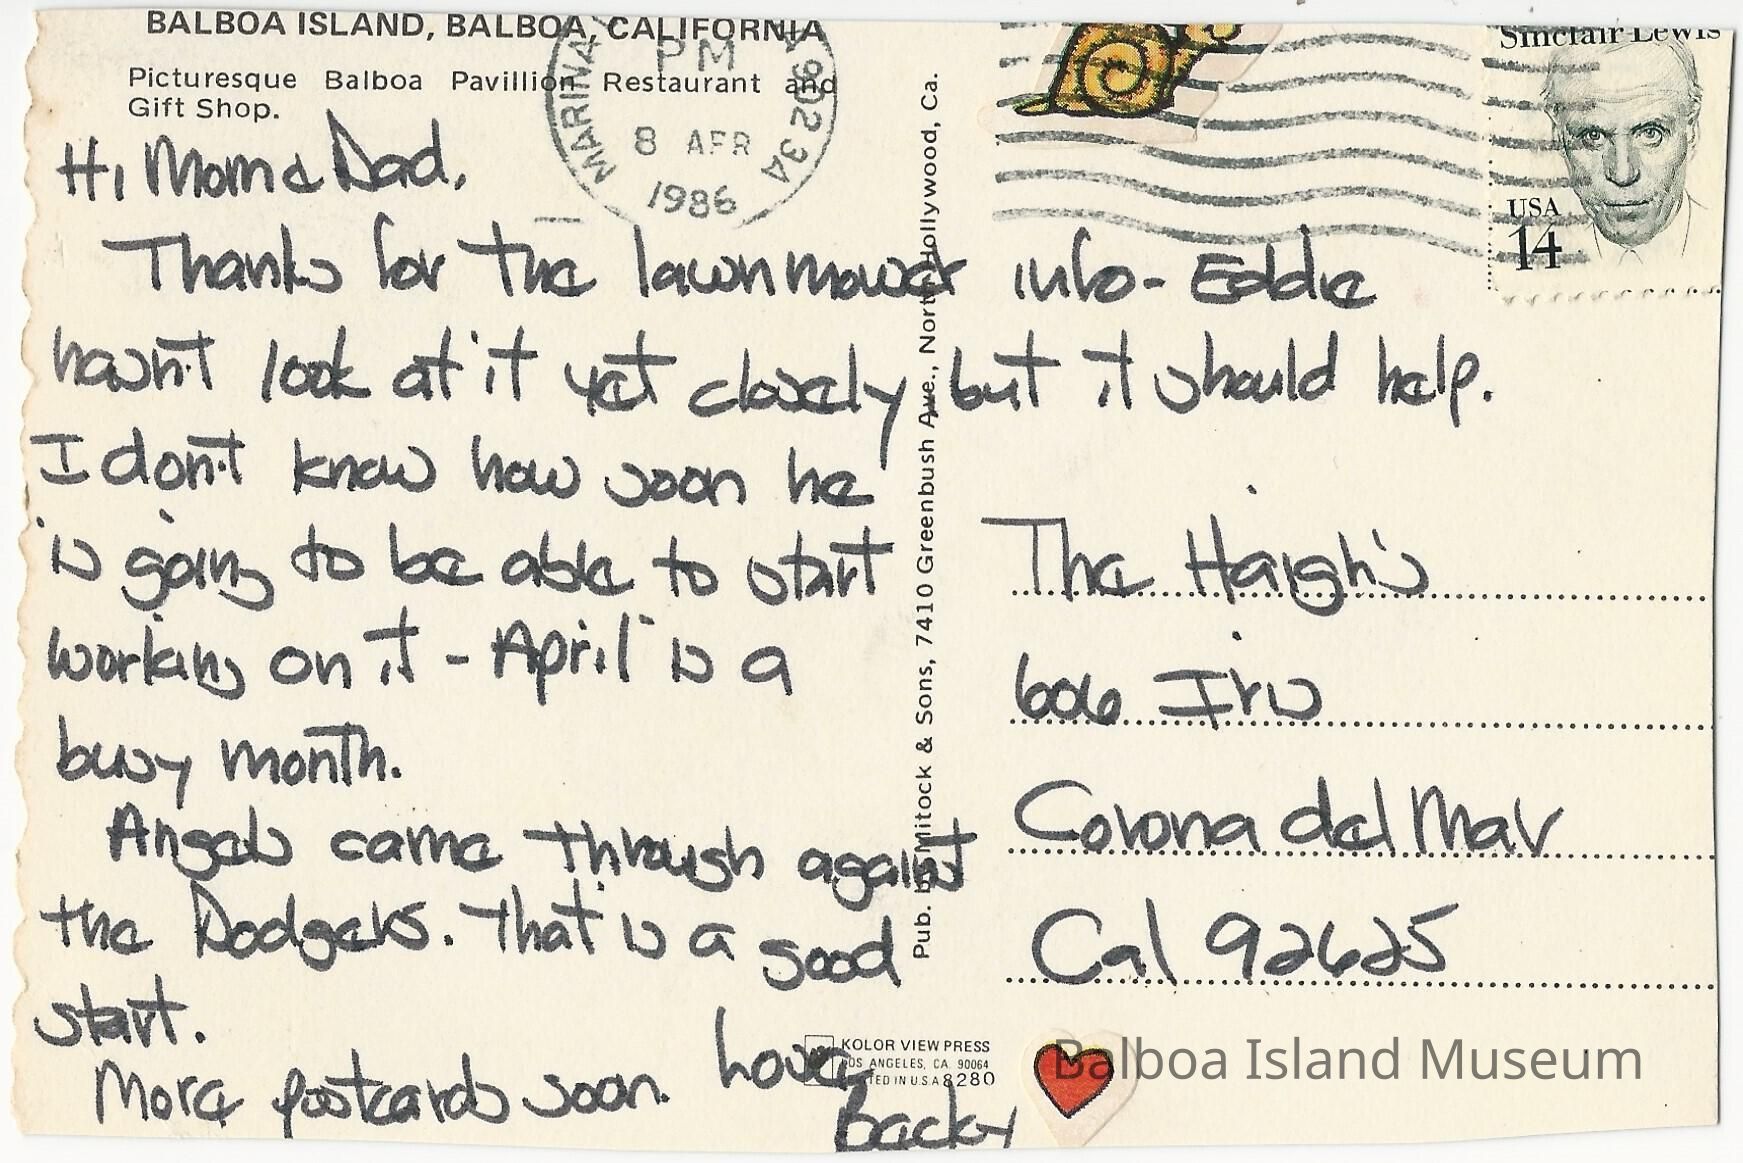 BALBOA ISLAND, BALBOA, CALIFORNIA
Picturesque Balboa Pavillion Restaurant and
Gift Shop.
MARINA
PM
8 APR
1986
90234
Sinclair Lewis
USA
14
Hi Mom & Dad,
Thanks for the lawnmower info- Eddie
hasn't look at it yet closely but it should help.
I don't know how soon he
is going to be able to start
working on it - April is a
busy month.
Angels came through against
the Dodgers. That is a good
start.
More postcards soon.
Love
Becky
Pub. by Mitock & Sons, 7410 Greenbush Ave., North Hollywood, Ca.
The Haigh's
606 Iris
Corona del Mar
Cal 92625
KOLOR VIEW PRESS
LOS ANGELES, CA. 90064
PRINTED IN U.S.A. 8280
Balboa Island Museum